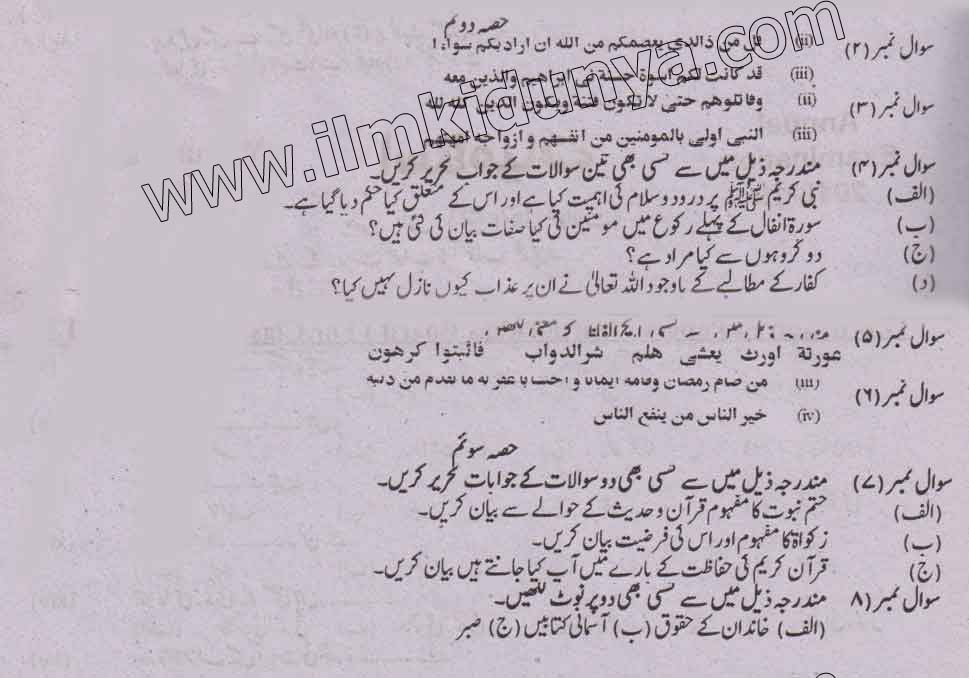 حصہ دوئم
سوال نمبر (۲) (ii) قل من ذالذی یعصمکم من الله ان ارادبکم سواءا
(iii) قد کانت لکم اسوة حسنة فی ابراهیم والذین معه
سوال نمبر (۳) (ii) وقاتلوهم حتی لا تکون فتنة ویکون الدین کله لله
(iii) النبی اولی بالمومنین من انفسهم و ازواجه امهتهم
سوال نمبر (۴) مندرجہ ذیل میں سے کسی بھی تین سوالات کے جواب تحریر کریں۔
(الف) نبی کریم ﷺ پر درود و سلام کی اہمیت کیا ہے اور اس کے متعلق کیا حکم دیا گیا ہے۔
(ب) سورۃ انفال کے پہلے رکوع میں مومنین کی کیا صفات بیان کی گئی ہیں؟
(ج) دو گروہوں سے کیا مراد ہے؟
(د) کفار کے مطالبے کے باوجود اللہ تعالیٰ نے ان پر عذاب کیوں نازل نہیں کیا؟
سوال نمبر (۵) مندرجہ ذیل میں سے کسی پانچ الفاظ کے معنی لکھیں۔
عورتة اورث یغشی هلم شرالدواب فاثبتوا کرهون
سوال نمبر (۶) (iii) من صام رمضان وقامه ایمانا و احتسابا غفر له ما تقدم من ذنبه
(iv) خیر الناس من ینفع الناس
حصہ سوئم
سوال نمبر (۷) مندرجہ ذیل میں سے کسی بھی دو سوالات کے جوابات تحریر کریں۔
(الف) ختم نبوت کا مفہوم قرآن و حدیث کے حوالے سے بیان کریں۔
(ب) زکواۃ کا مفہوم اور اس کی فرضیت بیان کریں۔
(ج) قرآن کریم کی حفاظت کے بارے میں آپ کیا جانتے ہیں بیان کریں۔
سوال نمبر (۸ مندرجہ ذیل میں سے کسی بھی دو پر نوٹ لکھیں۔
(الف) خاندان کے حقوق (ب) آسمانی کتابیں (ج) صبر
www.ilmkidunya.com